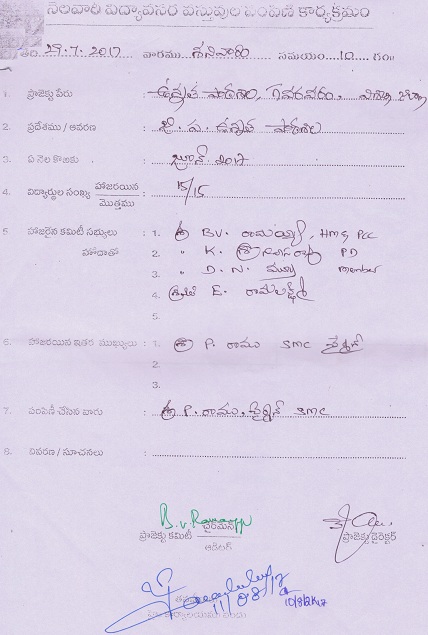 నెలవారీ విద్యావసర వస్తువుల పంపిణీ కార్యక్రమం
తేది 29.7.2017 వారము శనివారం సమయం 10 గం॥
1. ప్రాజెక్టు పేరు : ఉన్నత పాఠశాల,
2. ప్రదేశము / ఆవరణ : జి. ప. ఉన్నత పాఠశాల
3. ఏ నెల కొరకు : జూన్ 2017
4. విద్యార్థుల సంఖ్య హాజరయిన మొత్తము : 15/15
5 హాజరైన కమిటీ సభ్యులు హోదాతో : 1. శ్రీ B.V. రామయ్య, HM & PCC
2. " K. PD
3. " D. N. member
4. శ్రీమతి E. రామలక్ష్మి
5.
6. హాజరయిన ఇతర ముఖ్యులు : 1. శ్రీ P. రాము SMC చైర్మన్
2.
3.
7. పంపిణీ చేసిన వారు : శ్రీ P. రాము, చైర్మన్ SMC
8. వివరణ / సూచనలు :
B.V.
ప్రాజెక్టు కమిటీ చైర్మన్
ఆడిటర్
ప్రాజెక్టు డైరెక్టర్
11/08/17
10/8/2K17